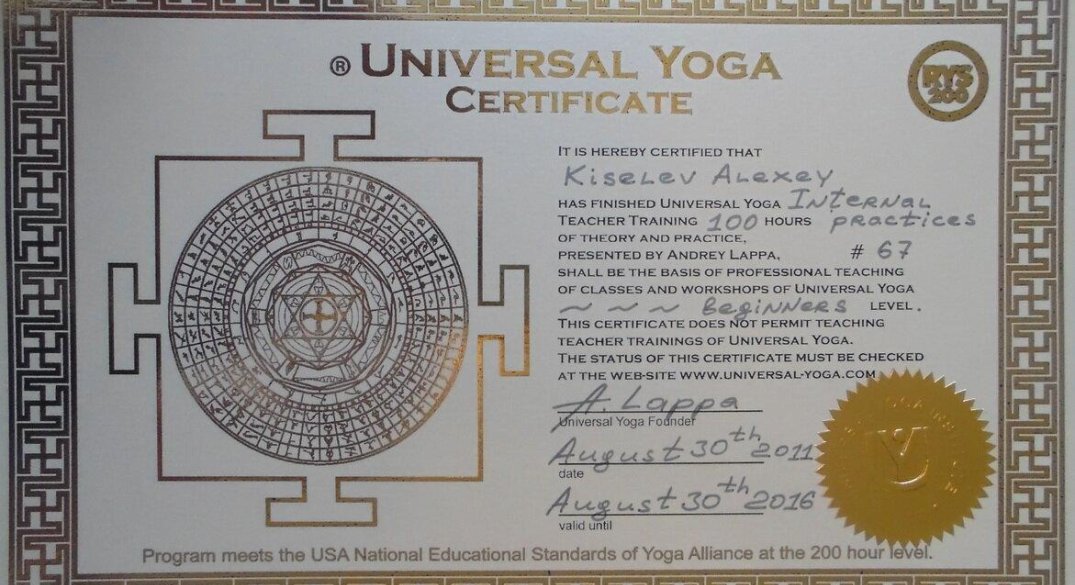 ® UNIVERSAL YOGA
CERTIFICATE
RYS
200
IT IS HEREBY CERTIFIED THAT
Kiselev Alexey
HAS FINISHED UNIVERSAL YOGA Internal
TEACHER TRAINING 100 HOURS practices
OF THEORY AND PRACTICE,
PRESENTED BY ANDREY LAPPA, # 67
SHALL BE THE BASIS OF PROFESSIONAL TEACHING
OF CLASSES AND WORKSHOPS OF UNIVERSAL YOGA
~ ~ ~ Beginners LEVEL.
THIS CERTIFICATE DOES NOT PERMIT TEACHING
TEACHER TRAININGS OF UNIVERSAL YOGA.
THE STATUS OF THIS CERTIFICATE MUST BE CHECKED
AT THE WEB-SITE WWW.UNIVERSAL-YOGA.COM
A. Lappa
Universal Yoga Founder
August 30th 2011
date
August 30th 2016
valid until
Program meets the USA National Educational Standards of Yoga Alliance at the 200 hour level.